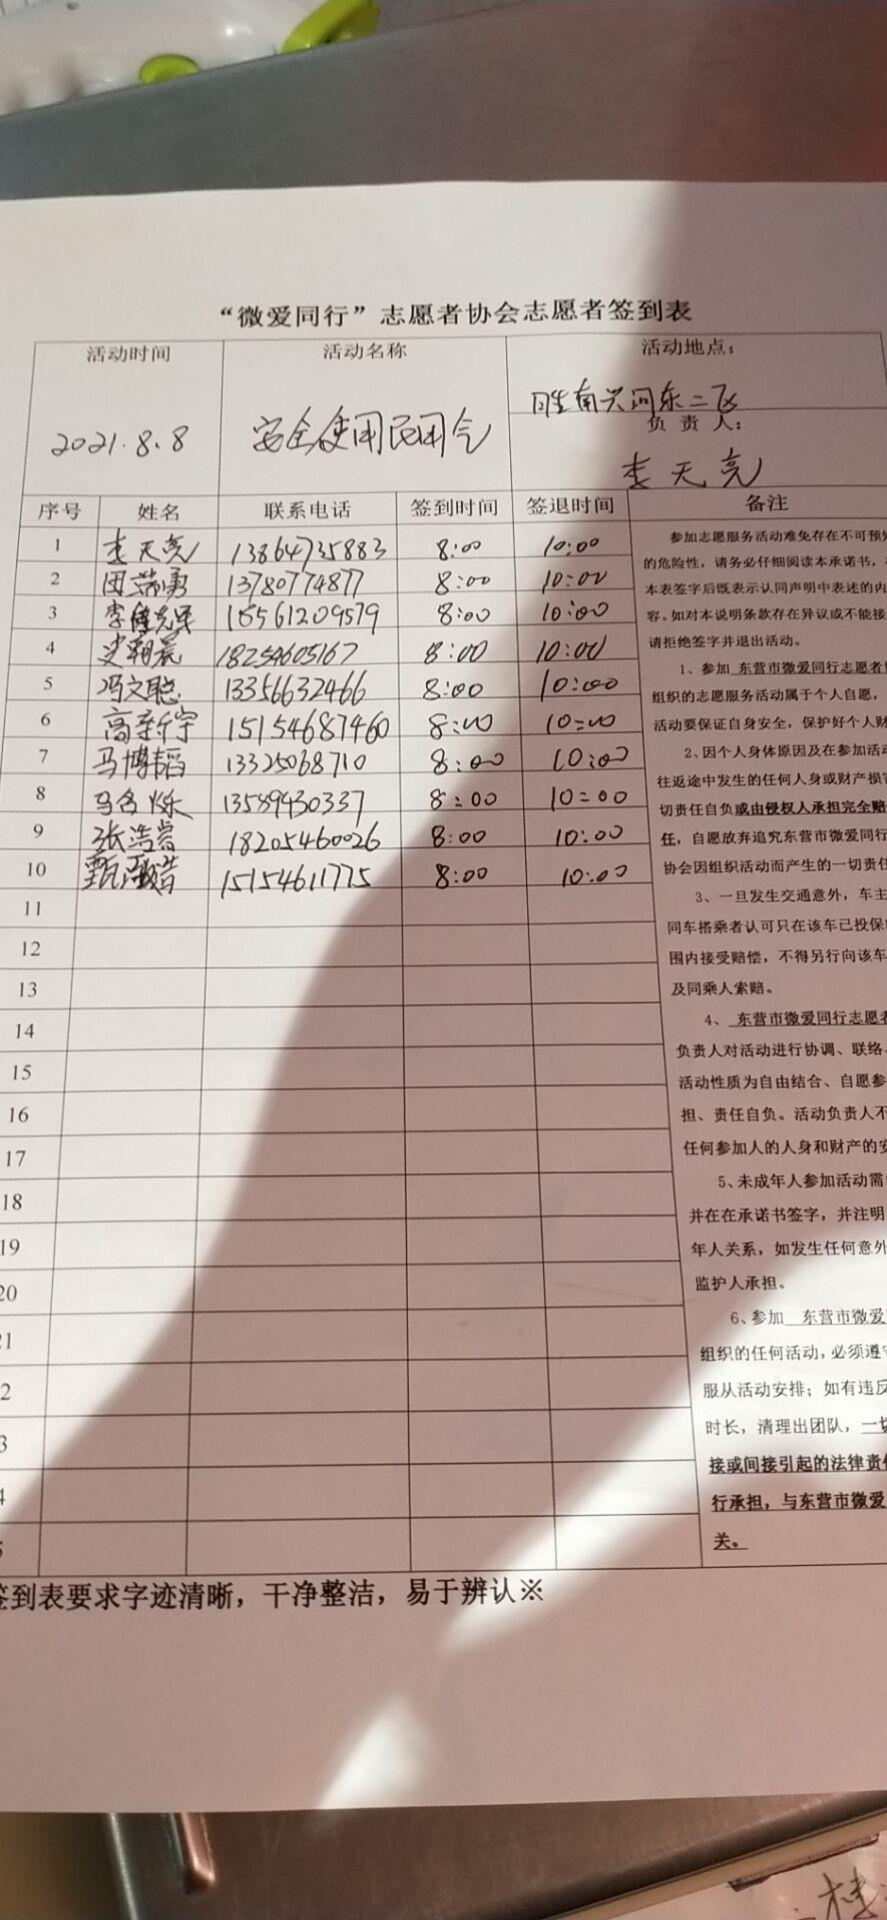 “微爱同行”志愿者协会志愿者签到表
活动时间 活动名称 活动地点：
2021.8.8 安全使用民用气
负责人：
李天亮
序号 姓名 联系电话 签到时间 签退时间 备注
1 李天亮 13864735883 8:00 10:00
2 田瑞勇 13780774877 8:00 10:00
3 15561209579 8:00 10:00
4 史朝晨 18254605167 8:00 10:00
5 冯文聪 13356632466 8:00 10:00
6 高梓宇 15154687460 8:00 10:00
7 马博韬 13325068710 8:00 10:00
8 马名烁 13589430337 8:00 10:00
9 张浩 18205460026 8:00 10:00
10 甄 15154611775 8:00 10:00
11
12
13
14
15
16
17
18
19
20
21
2
3
4
5
参加志愿服务活动难免存在不可预
的危险性，请务必仔细阅读本承诺书，
本表签字后既表示认同声明中表述的内
容。如对本说明条款存在异议或不能接
请拒绝签字并退出活动。
1、参加 东营市微爱同行志愿者
组织的志愿服务活动属于个人自愿，
活动要保证自身安全，保护好个人财
2、因个人身体原因及在参加活动
往返途中发生的任何人身或财产损害
切责任自负或由侵权人承担完全赔
任，自愿放弃追究东营市微爱同行
协会因组织活动而产生的一切责任
3、一旦发生交通意外，车主
同车搭乘者认可只在该车已投保
围内接受赔偿，不得另行向该车
及同乘人索赔。
4、 东营市微爱同行志愿者
负责人对活动进行协调、联络、
活动性质为自由结合、自愿参
担、责任自负。活动负责人不
任何参加人的人身和财产的安
5、未成年人参加活动需
并在在承诺书签字，并注明
年人关系，如发生任何意外
监护人承担。
6、参加 东营市微爱
组织的任何活动，必须遵守
服从活动安排；如有违反
时长，清理出团队，一切
接或间接引起的法律责任
行承担，与东营市微爱
关。
签到表要求字迹清晰，干净整洁，易于辨认※